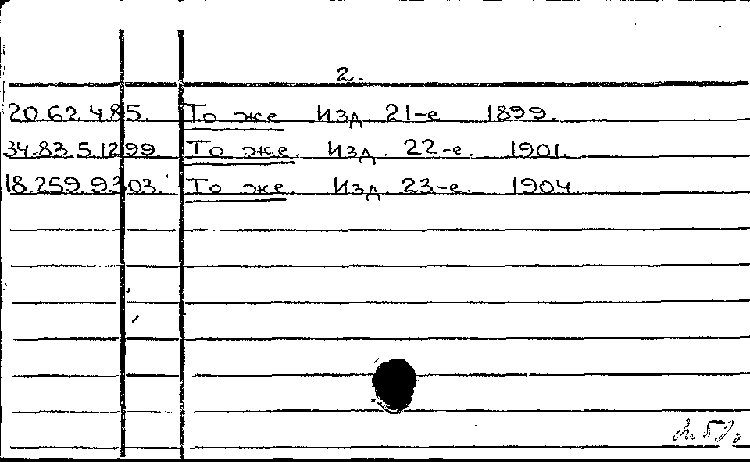 2.
20.62.4.85. То же Изд 21-е 1899.
34.83.5.1299 То же. Изд. 22-е. 1901.
18.259.9.303. То же. Изд. 23-е. 1904